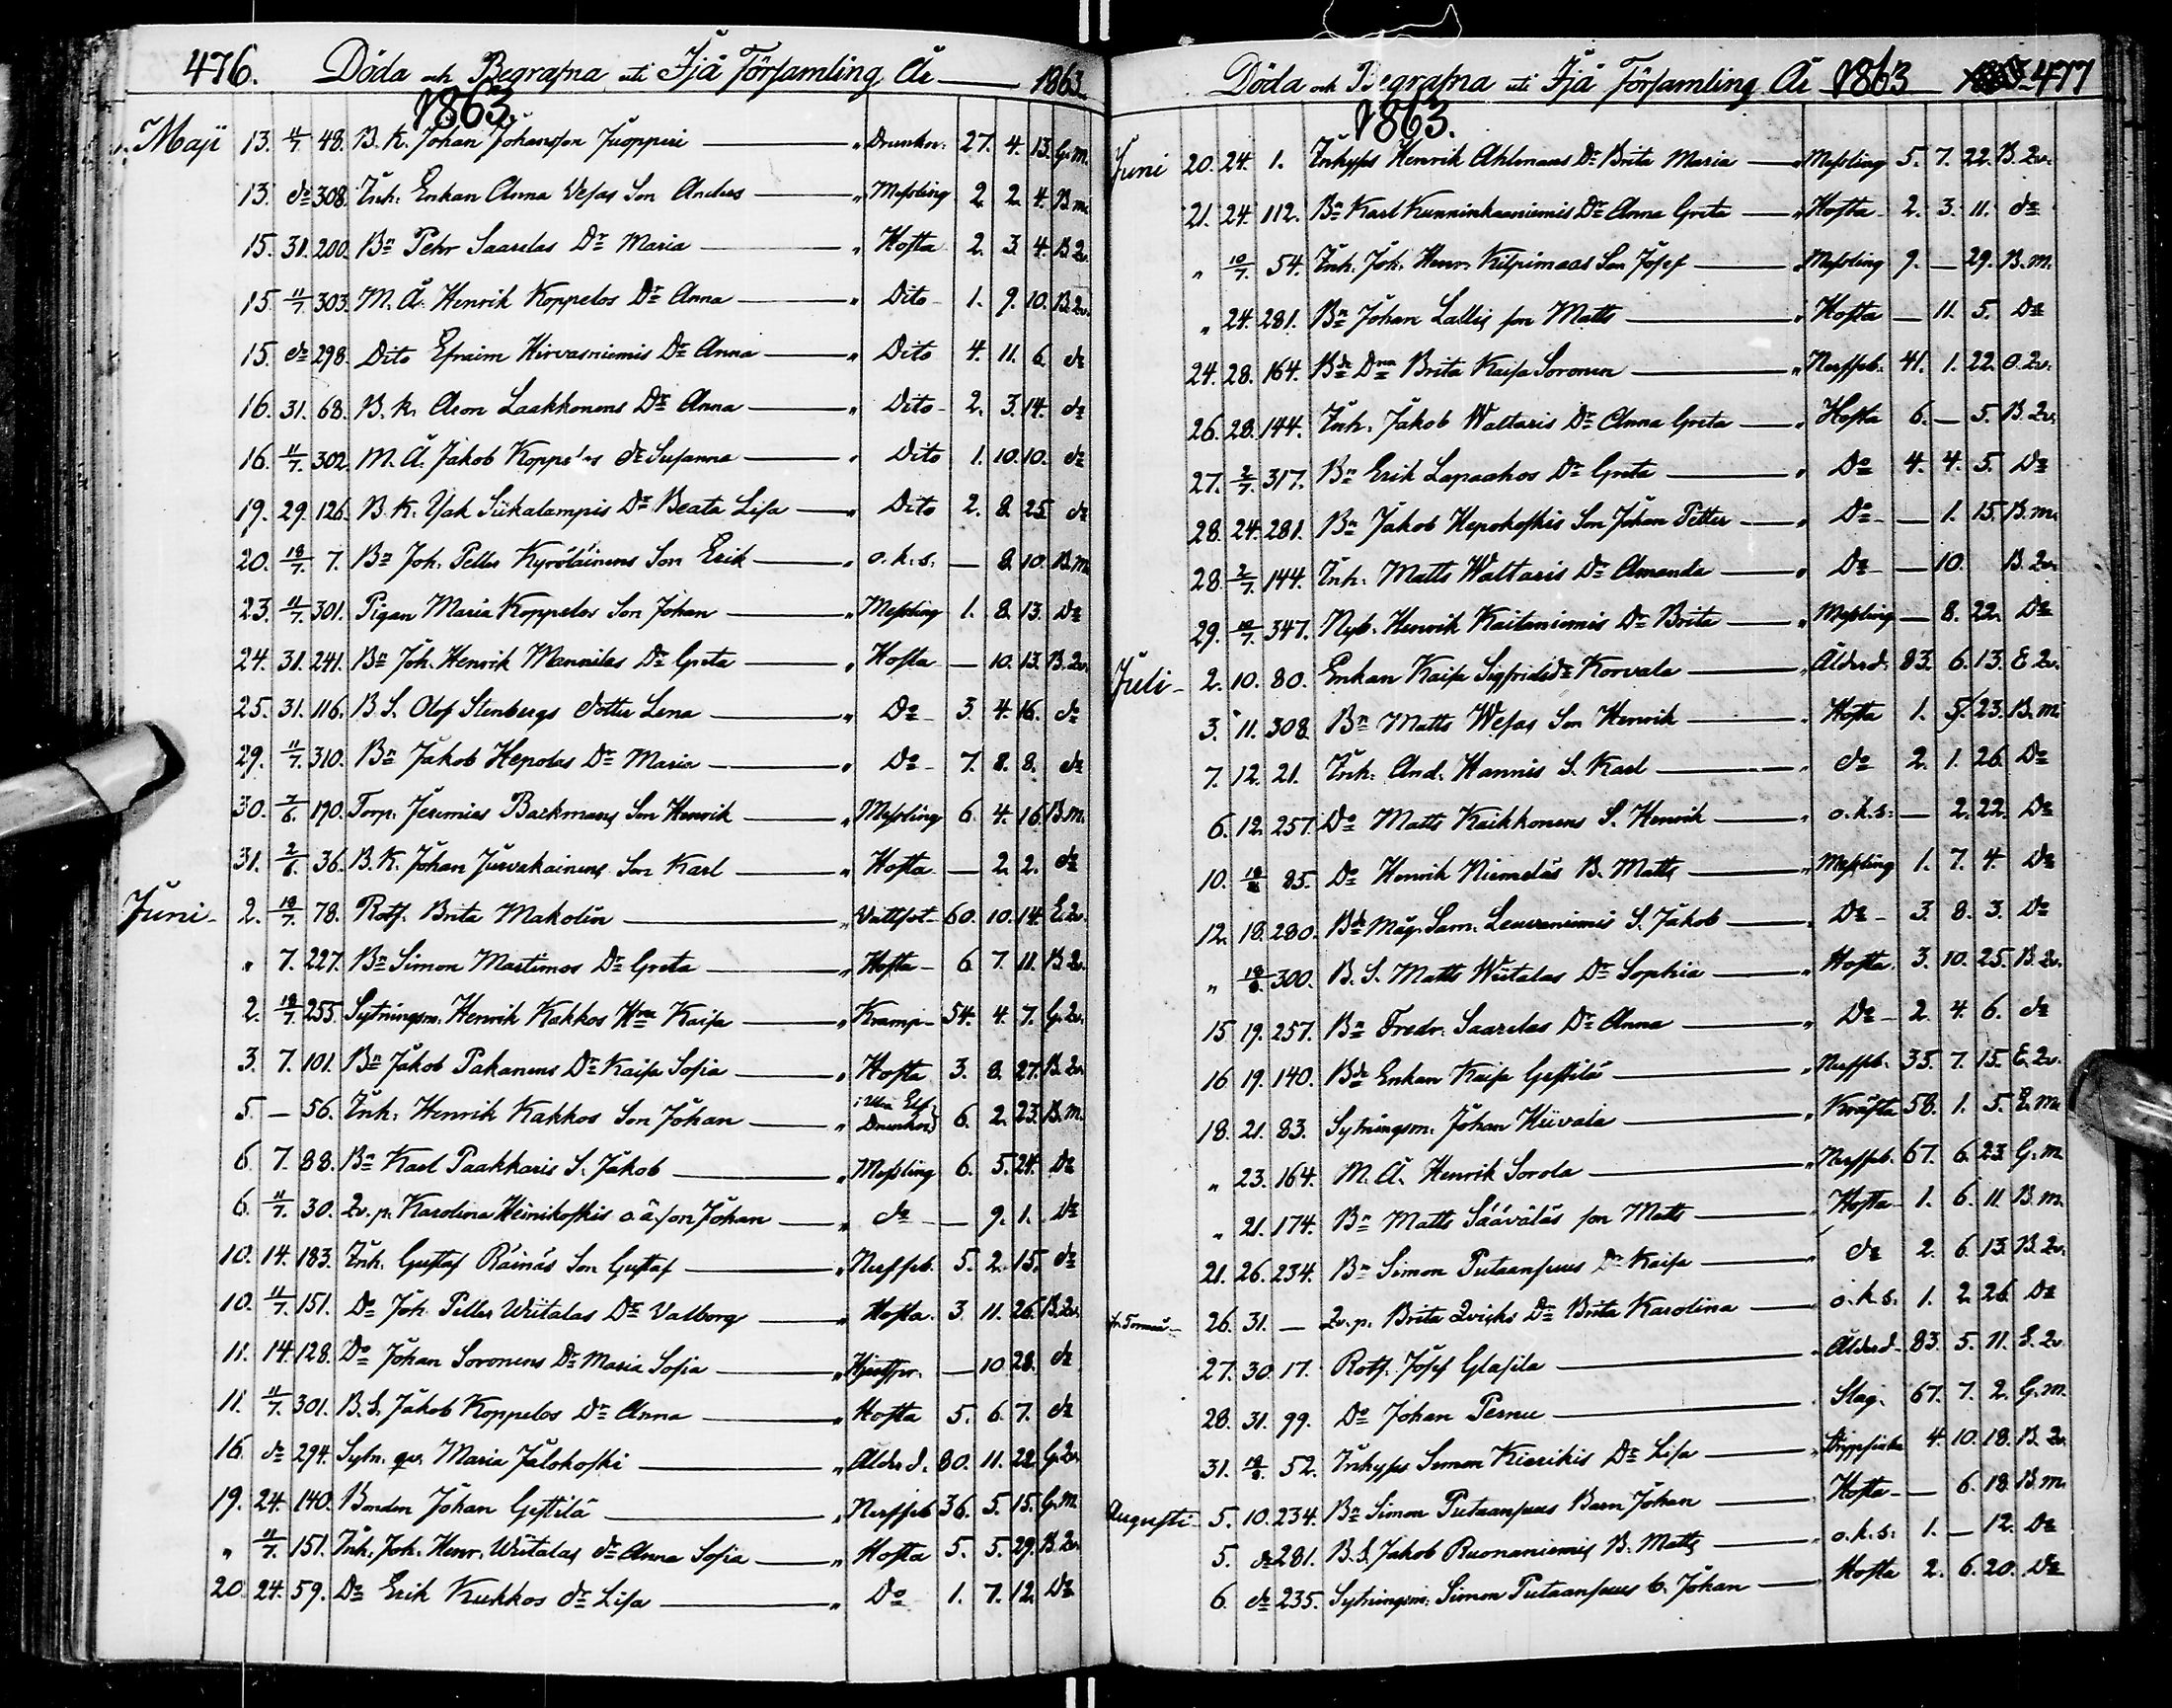 476. Döda och Begrafna uti Ijå Församling År 1863
1863.
Maji 13. 11/7. 48. B. K. Johan Johansson Juoppiri " Drunkn. 27. 4. 13. G. m.
13. do 308. Inh. Enkan Anna Vesas Son Andres " Meßling 2. 2. 4. B. m.
15. 31. 200. Bn Pehr Saarelas Dr Maria " Hosta 2. 3. 4. B. Qv.
15. 11/7. 303. M. Å. Henrik Koppelos Dr Anna " Dito 1. 9. 10. B. Qv.
15. do 298. Dito Efraim Hirvasniemis Dr Anna " Dito 4. 11. 6. do
16. 31. 68. B. K. Aron Laakkonens Dr Anna " Dito 2. 3. 14. do
16. 11/7. 302. M. Å. Jakob Koppelos dr Susanna " Dito 1. 10. 10. do
19. 29. 126. B. K. Isak Siikalampis Dr Beata Lisa " Dito 2. 8. 25. do
20. 18/7. 7. Bn Joh. Petter Kyröläinens Son Erik " o. k. s. — 8. 10. B. m.
23. 11/7. 301. Pigan Maria Koppelos Son Johan " Meßling 1. 8. 13. Do
24. 31. 241. Bn Joh. Henrik Mannilas Dr Greta " Hosta — 10. 13. B. Qv.
25. 31. 116. B. S. Olof Stenbergs dotter Lena " Do 3. 4. 16. do
29. 11/7. 310. Bn Jakob Hepolas Dr Maria " Do 7. 8. 8. do
30. 7/6. 190. Torp. Jeremias Barkmans Son Henrik " Meßling 6. 4. 16. B. m.
31. 2/8. 36. B. K. Johan Jurvakainens Son Karl " Hosta — 2. 2. do
Juni 2. 18/7. 78. Rotf. Brita Makolin " Vattsot 60. 10. 14. E. Qv.
" 7. 227. Bn Simon Martimos Dr Greta " Hosta 6. 7. 11. B. Qv.
2. 18/7. 255. Sytningsm. Henrik Kakkos Hru Kaisa " Kramp 54. 4. 7. G. Qv.
3. 7. 101. Bn Jakob Pakanens Dr Kaisa Sofia " Hosta 3. 8. 27. B. Qv.
5. — 56. Inh. Henrik Kakkos Son Johan " i Elf. Drunknad 6. 2. 23. B. m.
6. 7. 88. Bn Karl Paakkaris S. Jakob " Meßling 6. 5. 24. Do
6. 11/7. 30. Qv. p. Karolina Heinikoskis o. ä. son Johan " do — 9. 1. Do
10. 14. 183. Inh. Gustaf Räinäs Son Gustaf " Nerffeb. 5. 2. 15. do
10. 11/7. 151. Do Joh. Petter Wiitalas Dr Valborg " Hosta 3. 11. 26. B. Qv.
11. 14. 128. Do Johan Soronens Dr Maria Sofia " — 10. 28. do
11. 11/7. 301. B. S. Jakob Koppelos Dr Anna " Hosta 5. 6. 7. do
16. do 294. Sytn. qv. Maria Jålokoski " Ålderd. 80. 11. 22. G. Qv.
19. 24. 140. Bonden Johan Gestilä " Nerffeb 36. 5. 15. G. M.
" 11/7. 151. Inh. Joh. Henr. Wiitalas dr Anna Sofia " Hosta 5. 5. 29. B. Qv.
20. 24. 59. Do Erik Kukkos dr Lisa " Do 1. 7. 12. Do
Döda och Begrafna uti Ijå Församling År 1863 477
1863.
Juni 20. 24. 1. Inhyses Henrik Ahlmans Dr Brita Maria " Meßling 5. 7. 22. B. Qv.
21. 24. 112. Bn Karl Kunninkaaniemis Dr Anna Greta " Hosta 2. 3. 11. do
" 10/7. 54. Inh. Joh. Henr. Kilpimaas Son Josef " Meßling 9. — 29. B. M.
" 24. 281. Bn Johan Lallis son Matts " Hosta — 11. 5. Do
24. 28. 164. Bde Dra Brita Kaisa Soronen " Nerffeb. 41. 1. 22. O. Qv.
26. 28. 144. Inh. Jakob Waltaris Dr Anna Greta " Hosta 6. — 5. B. Qv.
27. 2/7. 317. Bn Erik Lapaahos Dr Greta " Do 4. 4. 5. Do
28. 24. 281. Bn Jakob Hepokoskis Son Johan Petter " Do — 1. 15. B. m.
28. 2/7. 144. Inh. Matts Waltaris Dr Amanda " Do — 10. B. Qv.
29. 10/7. 347. Nyb. Henrik Kaitaniemis Dr Brita " Meßling — 8. 22. Do
Juli 2. 10. 80. Enkan Kaisa Sigfridsdr Korvala " Ålderd. 83. 6. 13. E. Qv.
3. 11. 308. Bn Matts Wesas Son Henrik " Hosta 1. 5. 23. B. m.
7. 12. 21. Inh. And. Hannis S. Karl " do 2. 1. 26. Do
6. 12. 257. Do Matts Kaikkonens S. Henrik " o. k. s. — 2. 22. Do
10. 18/8. 85. Do Henrik Niemeläs B. Matts " Meßling 1. 7. 4. Do
12. 18. 280. Bde Måg. Sam. Leuvaniemis S. Jakob " Do 3. 8. 3. Do
" 18/8. 300. B. S. Matts Wiitalas Dr Sophia " Hosta 3. 10. 25. B. Qv.
15. 19. 257. Bn Fredr. Saarelas Dr Anna " Do 2. 4. 6. do
16. 19. 140. Bde Enkan Kaisa Gestilä " Nerffeb. 35. 7. 15. E. Qv.
18. 21. 83. Sytningsm. Johan Hiivala " Kräfta 58. 1. 5. E. m.
" 23. 164. M. Å. Henrik Sorola " Nerffeb. 67. 6. 23. G. m.
" 21. 174. Bn Matts Sääväläs son Matts " Hosta 1. 6. 11. B. m.
21. 26. 234. Bn Simon Putaansuus Dr Kaisa " do 2. 6. 13. B. Qv.
fr. Torneå 26. 31. — Qv. p. Brita Qvicks Dr Brita Karolina " o. k. s. 1. 2. 26. Do
27. 30. 17. Rotf. Josef Glasila " Ålderd. 83. 5. 11. E. Qv
28. 31. 99. Do Johan Pernu " Slag. 67. 7. 2. G. m.
31. 18/8. 52. Inhyses Simon Kierikis Dr Lisa " 4. 10. 18. B. Qv.
Augusti 5. 10. 234. Bn Simon Putaansuus Barn Johan " Hosta — 6. 18. B. m.
5. do 281. B. S. Jakob Ruonaniemis B. Matts " o. k. s. 1. — 12. Do
6. do 235. Sytningsm. Simon Putaansuus b. Johan " Hosta 2. 6. 20. Do